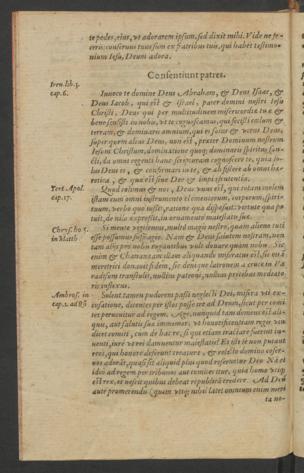 te pedes, eius, vt adorarem ipsum, sed dixit mihi. Vide ne feceris: conseruus tuus sum ex fratribus tuis, qui habēt testimonium Iesu, Deum adora.
Consentiunt patres.
Iren. lib. 3.
cap. 6.
Inuoco te domine Deus Abraham, & Deus Isaac, &
Deus Iacob, qui est & Israel, pater domini nostri Iesu
Christi. Deus qui per multitudinem misericordiæ tuæ &
bene sensisti in nobis, vt te cognoscamus, qui fecisti cœlum &
terram, & dominaris omnium, qui es solus & verus Deus,
super quem alius Deus non est, præter Dominum nostrum
Iesum Christum, dominatione quoque dominetis spiritus sancti,
da omni legenti hanc scripturam cognoscere te, quia solus
Deus es, & confirmari in te, & absistere ab omni hæretica,
& quæ est sine Deo & impia sententia.
Tert. Apol.
cap. 17.
Quod colimus & nos, Deus vnus est, qui totam molem
istam cum omni instrumento elementorum, corporum, spirituum,
verbo quo iussit, ratione qua disposuit: virtute qua potuit,
de nilo expressit, in ornamentū maiestatis suæ.
Chrys. ho 5.
in Matth.
Si mente vigilemus, multò magis nostro, quam alieno tuti
esse possumus suffragio. Nam & Deus salutem nostram, non
tam alijs pro nobis rogantibus vult donare quàm nobis. Sic
enim & Chananeam illam aliquando miseratus est, sic &
meretrici donauit fidem, sic deniq́ue latronem à cruce in Paradisum
transtulit, nullius patroni, nullius precibus mediatoris
inflexus.
Ambros. in
cap. 1. ad Ro
Solent tamen pudorem passi neglecti Dei, misera vti excusatione,
dicentes per istos posse ire ad Deum, sicut per comites
peruenitur ad regem. Age, nunquid tam demens est aliquis,
aut salutis suæ immemor, vt honorificentiam regis vindicet
comiti, cum de hac re, si qui etiam tractare fuerint inuenti,
iure vt rei damnentur maiestatis? Et isti se non putant
reos, qui honorē deferunt creaturæ, & relicto domino conseruos
adorāt, quasi sit aliquid plus quod reseruetur Deo. Nā et
ideo ad regem per tribunos aut comites itur, quia homo vtiq́;
est rex, et nescit quibus debeat rempub. credere. Ad Deū
autē promerendū (quem vtiq́; nihil latet omnium enim merita
ta no-